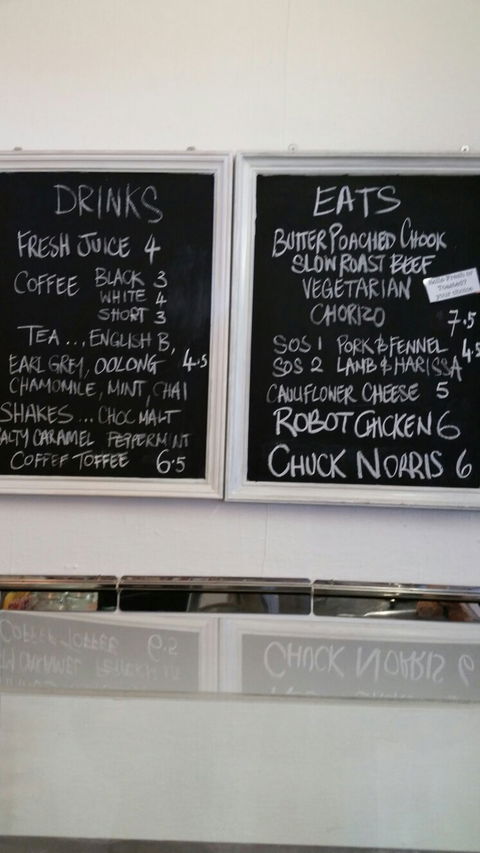 DRINKS
FRESH JUICE 4
COFFEE BLACK 3
WHITE 4
SHORT 3
TEA ... ENGLISH B,
EARL GREY, OOLONG 4.5
CHAMOMILE, MINT, CHAI
SHAKES ... CHOC MALT
ALTY CARAMEL PEPPERMINT
COFFEE TOFFEE 6.5
EATS
BUTTER POACHED CHOOK
SLOW ROAST BEEF
VEGETARIAN
CHORIZO 7.5
Rolls Fresh or
Toasted?
your choice
SOS 1 PORK & FENNEL 4.5
SOS 2 LAMB & HARISSA
CAULIFLOWER CHEESE 5
ROBOT CHICKEN 6
CHUCK NORRIS 6